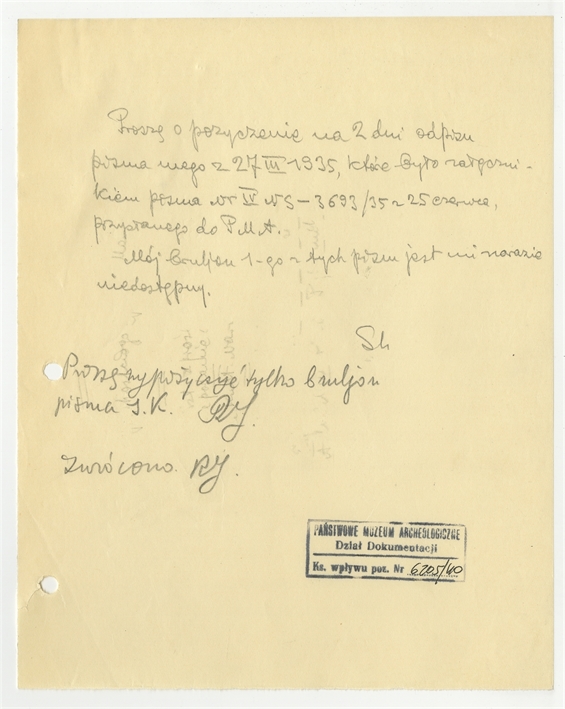 Proszę o pożyczenie na 2 dni odpisu
pisma mego z 27 III 1935, które było załączni-
kiem pisma Nr IV NS – 3693/35 z 25 czerwca,
przysłanego do P.M.A.
Mój bruljon 1-go z tych pism jest mi narazie
niedostępny.
Sk
Proszę wypożyczyć tylko bruljon
pisma S.K. RJ.
Zwrócono. RJ.
PAŃSTWOWE MUZEUM ARCHEOLOGICZNE
Dział Dokumentacji
Ks. wpływu poz. Nr 6205/40